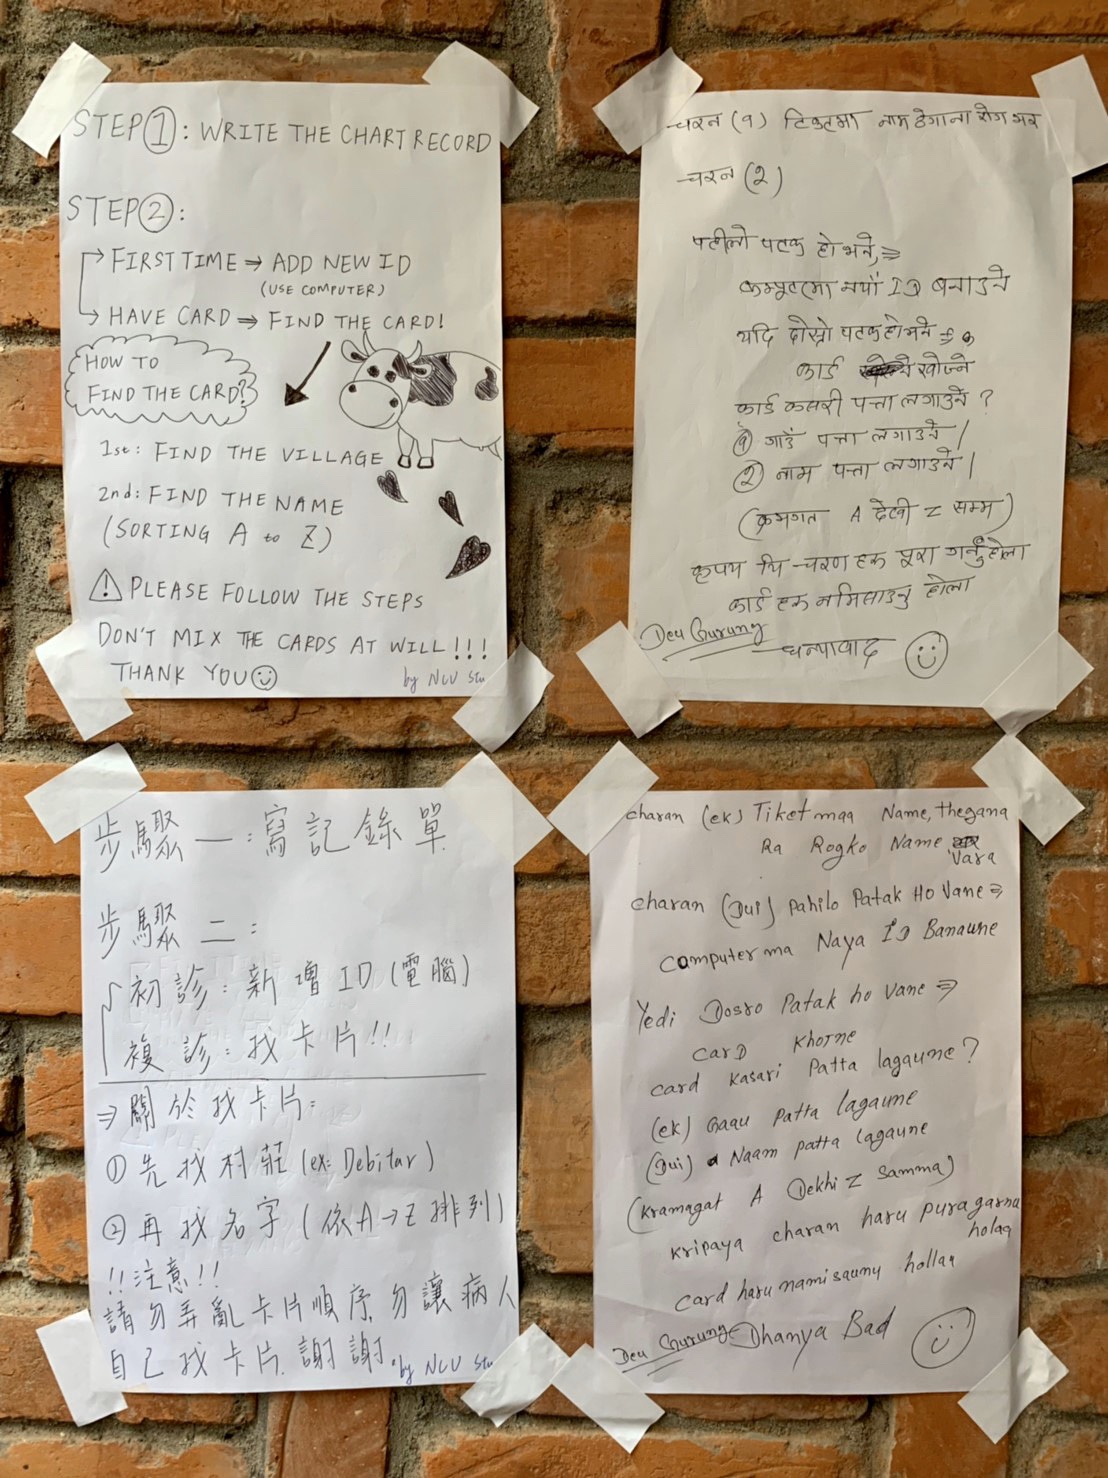 STEP①: WRITE THE CHART RECORD
STEP②:
FIRST TIME ⇒ ADD NEW ID
(USE COMPUTER)
HAVE CARD ⇒ FIND THE CARD!
HOW TO
FIND THE CARD?
1st: FIND THE VILLAGE
2nd: FIND THE NAME
(SORTING A to Z)
⚠ PLEASE FOLLOW THE STEPS
DON'T MIX THE CARDS AT WILL!!!
THANK YOU☺
by NCU Stu
चरन (१) टिकटमा नाम ठेगाना रोग भर
चरन (२)
पहीलो पटक हो भने,⇒
कम्पूटरमा नयाँ ID बनाउने
यदि दोस्रो पटक हो भने ⇒
कार्ड खोज्ने
कार्ड कसरी पत्ता लगाउने ?
① गाउँ पत्ता लगाउने |
② नाम पत्ता लगाउने |
(क्रमगत A देखी Z सम्म)
कृपया चरण हरू पूरा गर्नुहोला
कार्ड हरू नमिसाउनु होला
Deu Gurung
धन्यावाद ☺
步驟一:寫記錄單
步驟二:
初診:新增ID(電腦)
複診:找卡片!!
⇒關於找卡片:
①先找村莊(ex: Debitar)
②再找名字(依A→Z排列)
!!注意!!
請勿弄亂卡片順序,勿讓病人
自己找卡片.謝謝.
by NCU Stu
charan (ek) Tiket maa Name, thegana
Ra Rogko Name Vara
charan (Dui) Pahilo Patak Ho Vane ⇒
computer ma Naya ID Banaune
Yedi Dosro Patak ho vane ⇒
CARD Khojne
card kasari Patta lagaune?
(ek) Gaau patta lagaune
(Dui) Naam patta lagaune
(kramagat A Dekhi Z samma)
kripaya charan haru pura garnu
holaa
card haru namisaunu hollaa
Deu Gurung Dhanya Bad ☺